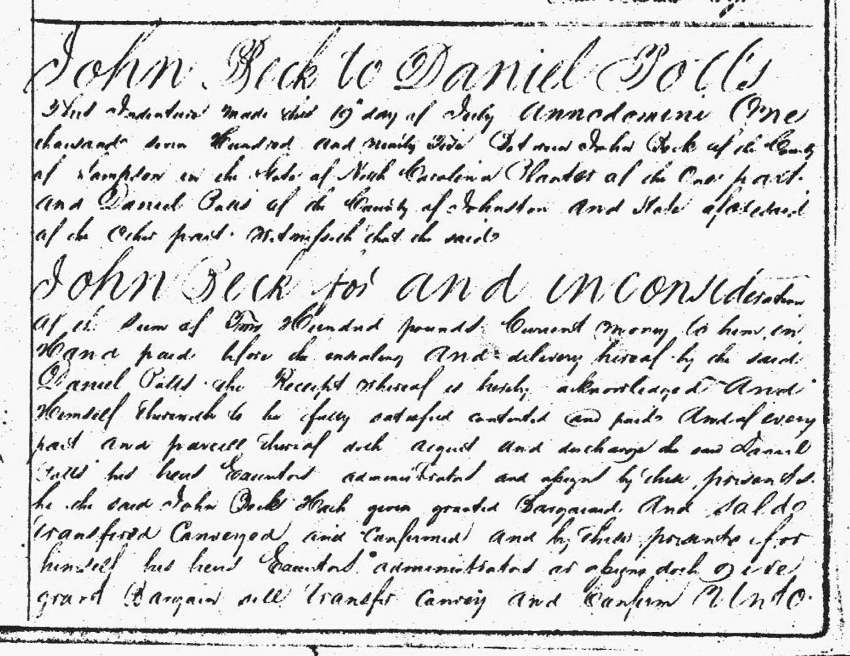 John Peck to Daniel Potts
This Indenture made this 19th day of July annodomini One
thousand seven Hundred and ninity Five Between John Peck of the County
of Sampson in the State of North Carolina Planter of the One part
and Daniel Potts of the County of Johnston and State aforesaid
of the Other part Witnesseth that the said
John Peck for and inconsideration
of the Sum of Two Hundred pounds Current money to him in
Hand paid before the ensealing and delivery hereof by the said
Daniel Potts the Receipt whereof is hereby acknowledged And
Himself therewith to be fully satisfied contented and paid And of every
part and parcell thereof doth acquit and discharge the said Daniel
Potts his heirs Executors administrators and assigns by these presents
he the said John Peck Hath given granted Bargained And sold
transfered Conveyed and confirmed and by these presents for
himself his heirs Executors administrators or assigns doth give
grant Bargain sell transfer convey and Confirm Unto